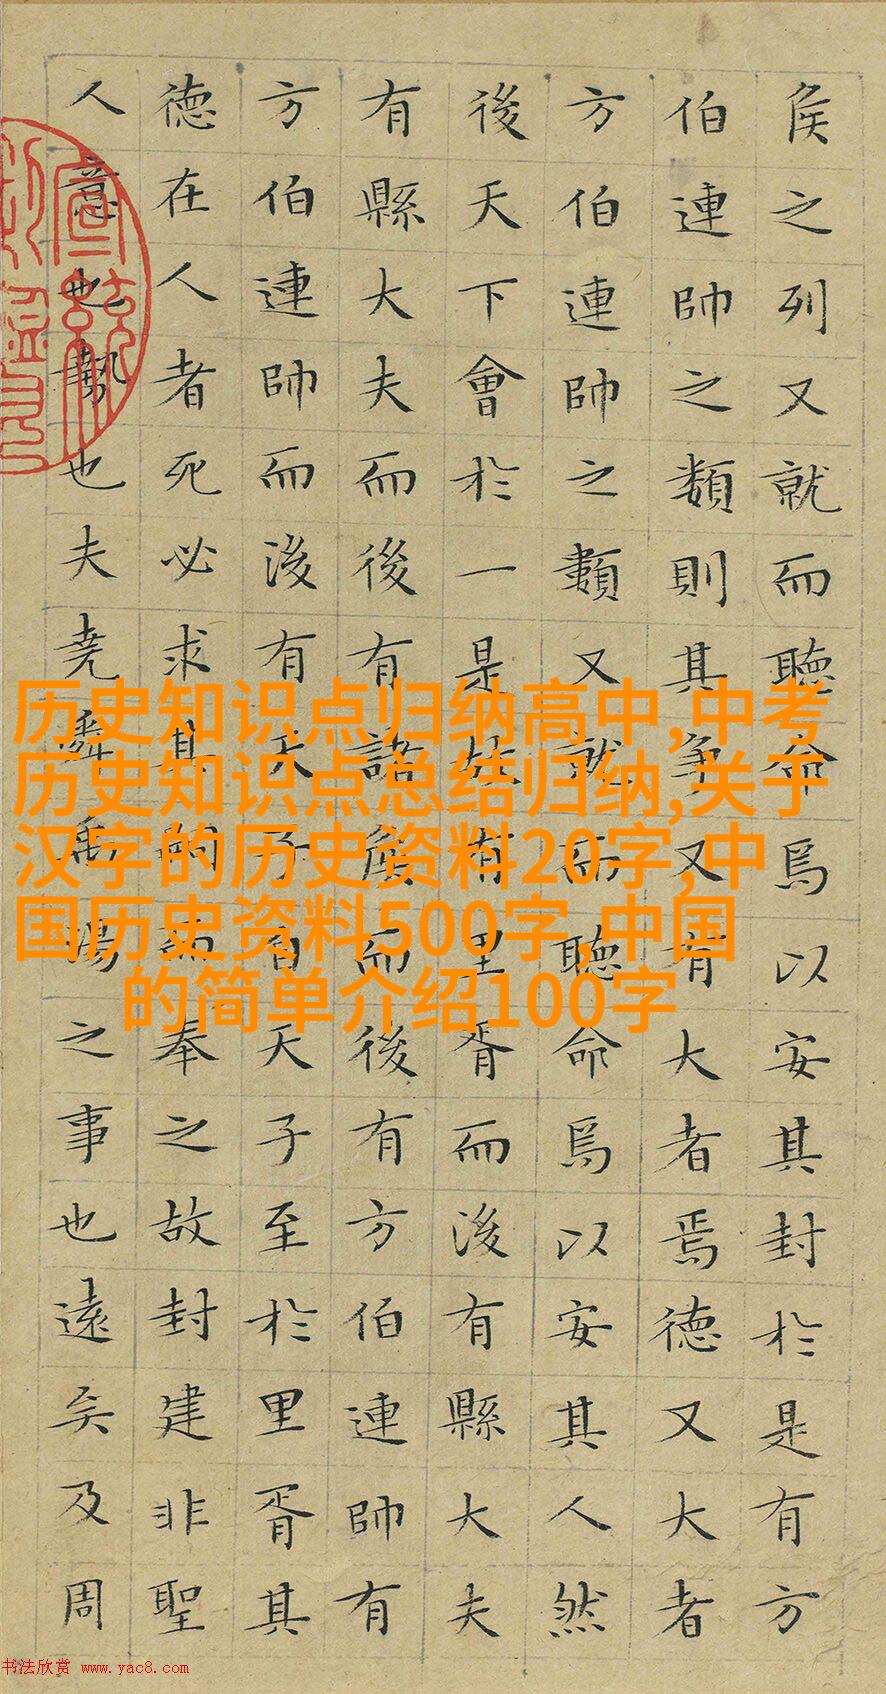 侯之列又就而聽命焉以安其封於是有方
伯連帥之類則其爭又有大者焉德又大者
方伯連帥之類又就而聽命焉以安其人然
後天下會於一是故有里胥而後有縣大夫
有縣大夫而後有諸侯而後有方伯連帥有
方伯連帥而後有天子自天子至於里胥其
德在人者死必求其嗣而奉之故封建非聖
人意也勢也夫堯舜禹湯之事也遠矣及周
宣統
历史知识点归纳高中,中考
历史知识点总结归纳,关于
汉字的历史资料20字,中
国历史资料500字,中国
的简单介绍100字
书法欣赏 www.yac8.com